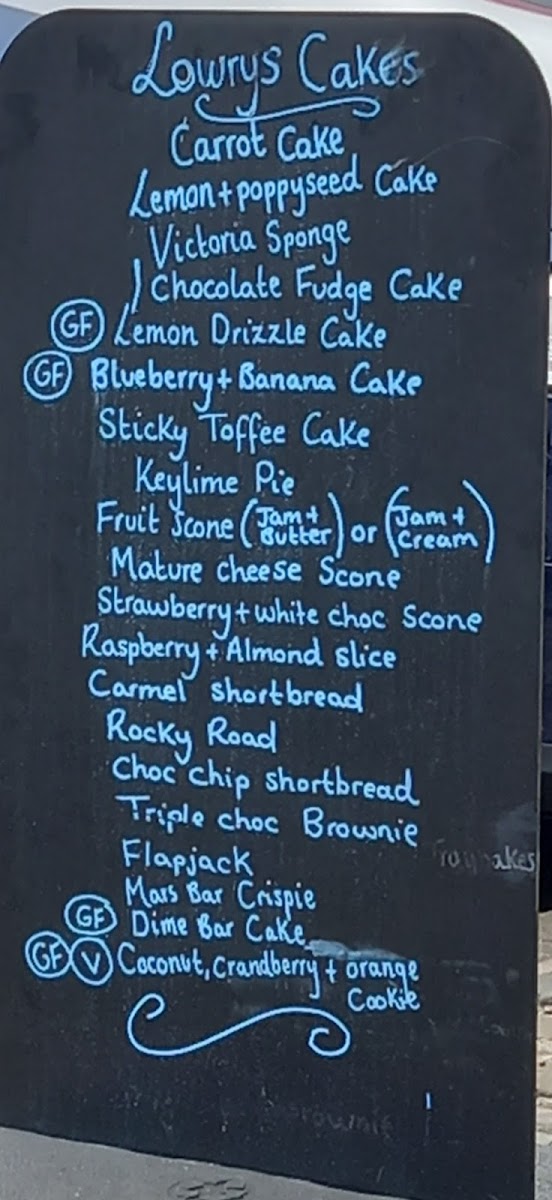 Lowrys Cakes
Carrot Cake
Lemon + poppyseed Cake
Victoria Sponge
Chocolate Fudge Cake
GF Lemon Drizzle Cake
GF Blueberry + Banana Cake
Sticky Toffee Cake
Keylime Pie
Fruit Scone (Jam + Butter) or (Jam + Cream)
Mature cheese Scone
Strawberry + white choc Scone
Raspberry + Almond slice
Carmel shortbread
Rocky Road
Choc chip shortbread
Triple choc Brownie
Flapjack
Mars Bar Crispie
GF Dime Bar Cake
GF V Coconut, Crandberry + orange
Cookie